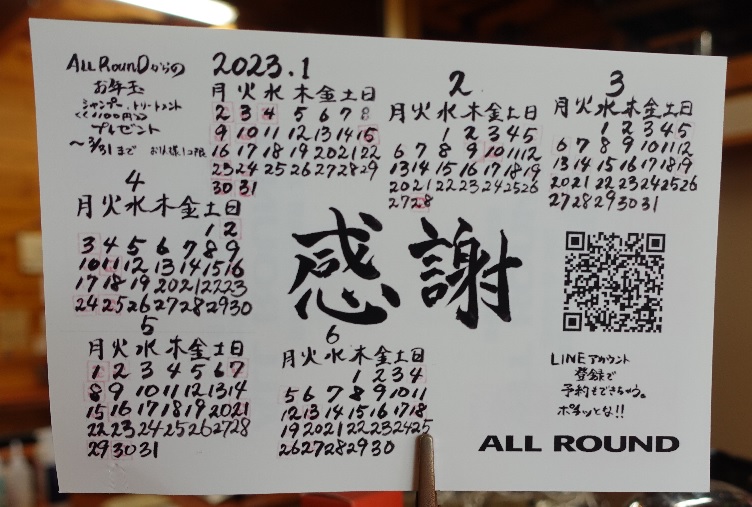 ALL RounDからの
お年玉
シャンプー、トリートメント
<<1100円>>
プレゼント
〜3/31まで お1人様1コ限
2023.1
月 火 水 木 金 土 日
2 3 4 5 6 7 8
9 10 11 12 13 14 15
16 17 18 19 20 21 22
23 24 25 26 27 28 29
30 31
2
月 火 水 木 金 土 日
1 2 3 4 5
6 7 8 9 10 11 12
13 14 15 16 17 18 19
20 21 22 23 24 25 26
27 28
3
月 火 水 木 金 土 日
1 2 3 4 5
6 7 8 9 10 11 12
13 14 15 16 17 18 19
20 21 22 23 24 25 26
27 28 29 30 31
4
月 火 水 木 金 土 日
1 2
3 4 5 6 7 8 9
10 11 12 13 14 15 16
17 18 19 20 21 22 23
24 25 26 27 28 29 30
感謝
5
月 火 水 木 金 土 日
1 2 3 4 5 6 7
8 9 10 11 12 13 14
15 16 17 18 19 20 21
22 23 24 25 26 27 28
29 30 31
6
月 火 水 木 金 土 日
1 2 3 4
5 6 7 8 9 10 11
12 13 14 15 16 17 18
19 20 21 22 23 24 25
26 27 28 29 30
LINEアカウント
登録で
予約もできちゃう。
ポチッとな!!
ALL ROUND